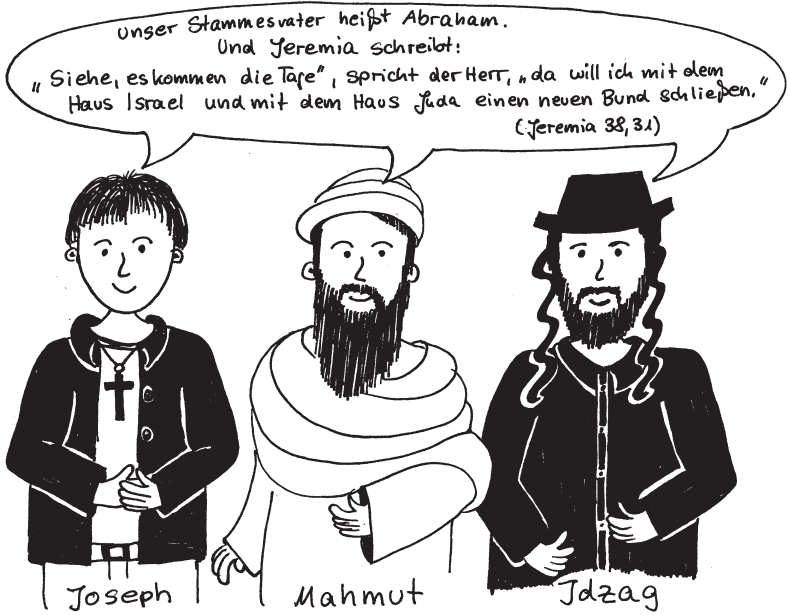 unser Stammesvater heißt Abraham.
Und Jeremia schreibt:
„Siehe, es kommen die Tage", spricht der Herr, „da will ich mit dem
Haus Israel und mit dem Haus Juda einen neuen Bund schließen."
(Jeremia 38,31)
Joseph Mahmut Idzag